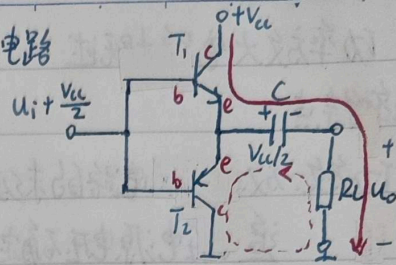 电路
+Vcc
T₁
c
b
e
C
+
-
ui + Vcc/2
Vcc/2
e
b
c
T₂
RL
+
uo
-